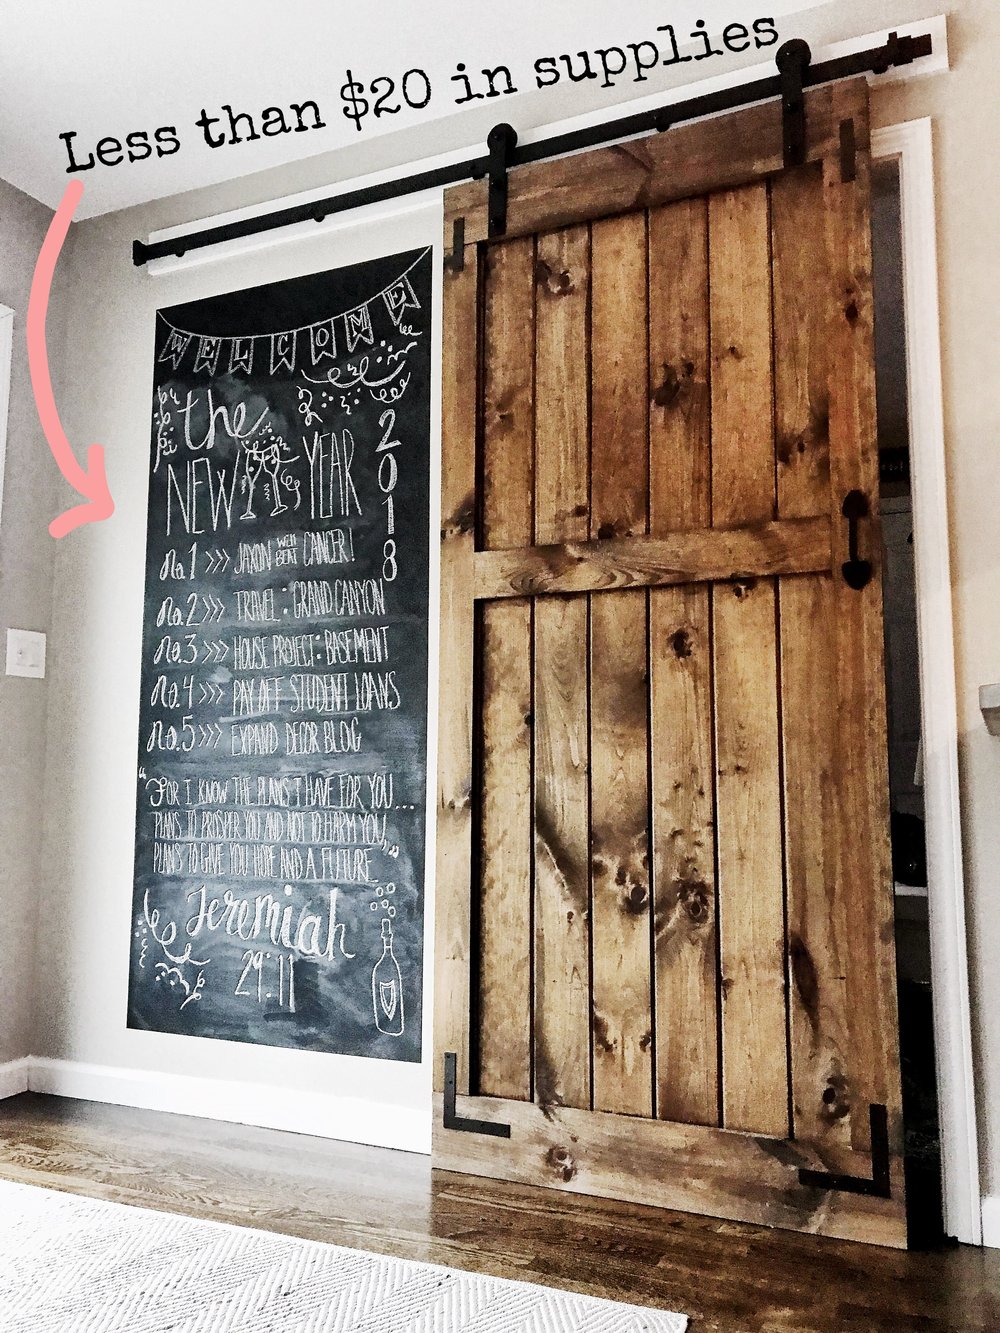 Less than $20 in supplies
WELCOME
the
NEW YEAR
2018
No.1 >>> JAXON WE'LL BEAT CANCER!
No.2 >>> TRAVEL: GRAND CANYON
No.3 >>> HOUSE PROJECT: BASEMENT
No.4 >>> PAY OFF STUDENT LOANS
No.5 >>> EXPAND DECOR BLOG
"FOR I KNOW THE PLANS I HAVE FOR YOU...
PLANS TO PROSPER YOU AND NOT TO HARM YOU,
PLANS TO GIVE YOU HOPE AND A FUTURE."
Jeremiah
29:11